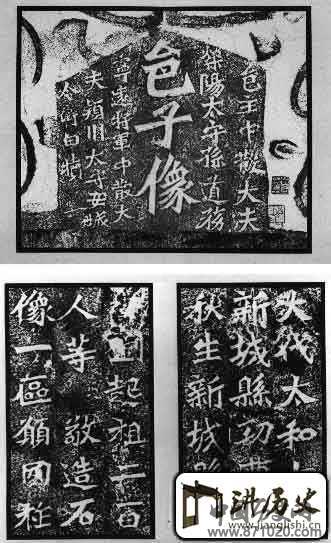 邑主中散大夫
滎陽太守孫道務
邑子像
寧遠將軍中散大
夫潁川太守安城
令衛白犢
大代太和
新城縣功曹
秋生新城縣
起祖二百
人等敬造石
像一區願國祚
讲历史
www.jianglishi.cn
www.871020.com